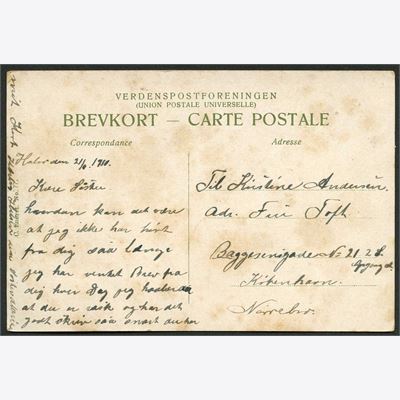 VERDENSPOSTFORENINGEN
(UNION POSTALE UNIVERSELLE)
BREVKORT — CARTE POSTALE
Correspondance
Adresse
21/6 1910.
Kære
hvordan kan det være
at jeg ikke har hørt
fra dig saa længe
jeg har ventet Brev fra
dig hver Dag jeg haaber
at du er rask og har det
godt skriv saa snart du har
Til Kirstine Andersen.
Adr. Fru Toft
Baggesensgade No 21 2 S.
København.
Nørrebro.